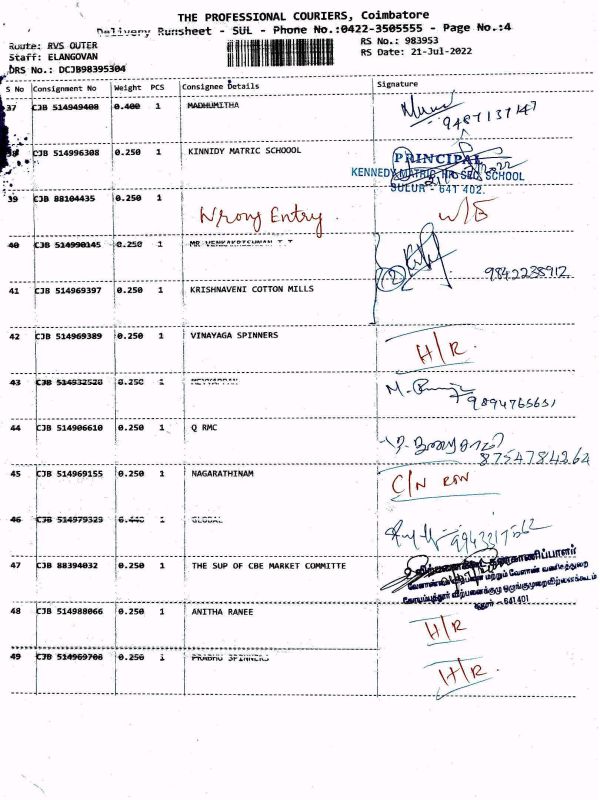 THE PROFESSIONAL COURIERS, Coimbatore
Delivery Runsheet - SUL - Phone No.:0422-3505555 - Page No.:4
Route: RVS OUTER
Staff: ELANGOVAN
DRS No.: DCJB98395304
RS No.: 983953
RS Date: 21-Jul-2022
S No Consignment No Weight PCS Consignee Details Signature
37 CJB 514949408 0.400 1 MADHUMITHA
9487137147
38 CJB 514996308 0.250 1 KINNIDY MATRIC SCHOOOL
PRINCIPAL
KENNEDY MATRIC HR SEC SCHOOL
SULUR - 641 402.
39 CJB 88104435 0.250 1
Wrong Entry. W/E
40 CJB 514990145 0.250 1 MR VENKAKRISHNAN T T
2
9842238912
41 CJB 514969397 0.250 1 KRISHNAVENI COTTON MILLS
42 CJB 514969389 0.250 1 VINAYAGA SPINNERS H/R.
43 CJB 514932520 0.250 1 MEYYAPPAN
9894765651
44 CJB 514906610 0.250 1 Q RMC
8754784262
45 CJB 514969155 0.250 1 NAGARATHINAM C/N
46 CJB 514979329 0.440 1 GLOBAL
9943317562
47 CJB 88394032 0.250 1 THE SUP OF CBE MARKET COMMITTE
கோயம்புத்தூர் விற்பனைக்குழு ஒழுங்குமுறை விற்பனைக்கூடம்
சூலூர் - 641401
48 CJB 514988066 0.250 1 ANITHA RANEE H/R
49 CJB 514969708 0.250 1 PRABHU SPINNERS H/R.